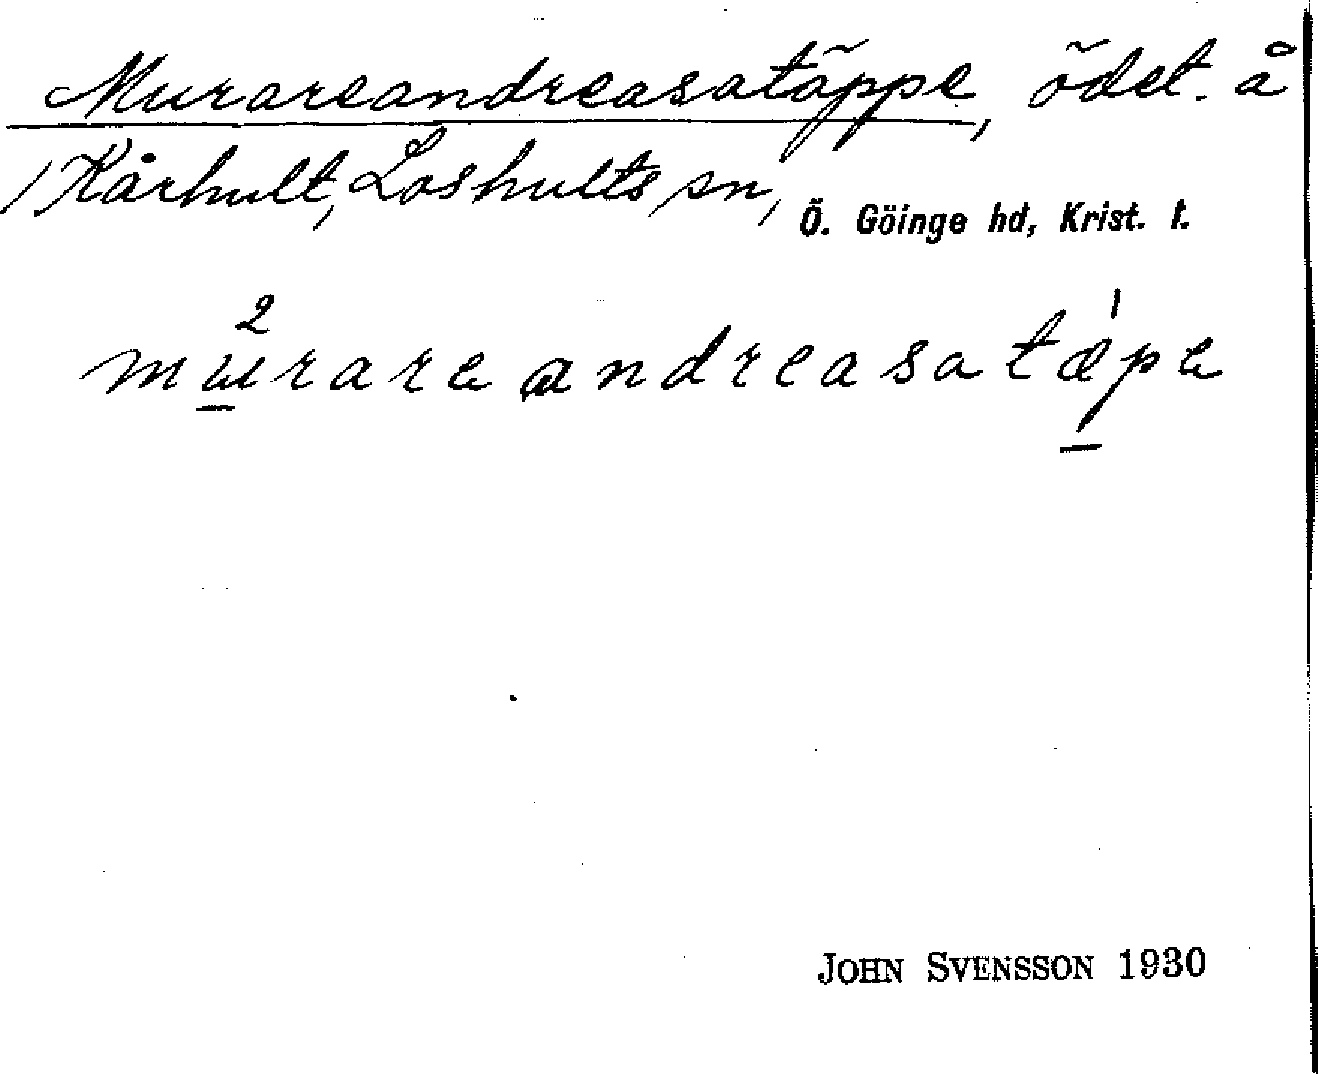 Murareandreasatäppe, ödet. å
Kårhult, Loshults sn, Ö. Göinge hd, Krist. l.
2 1
murare andreasatæpe
JOHN SVENSSON 1930